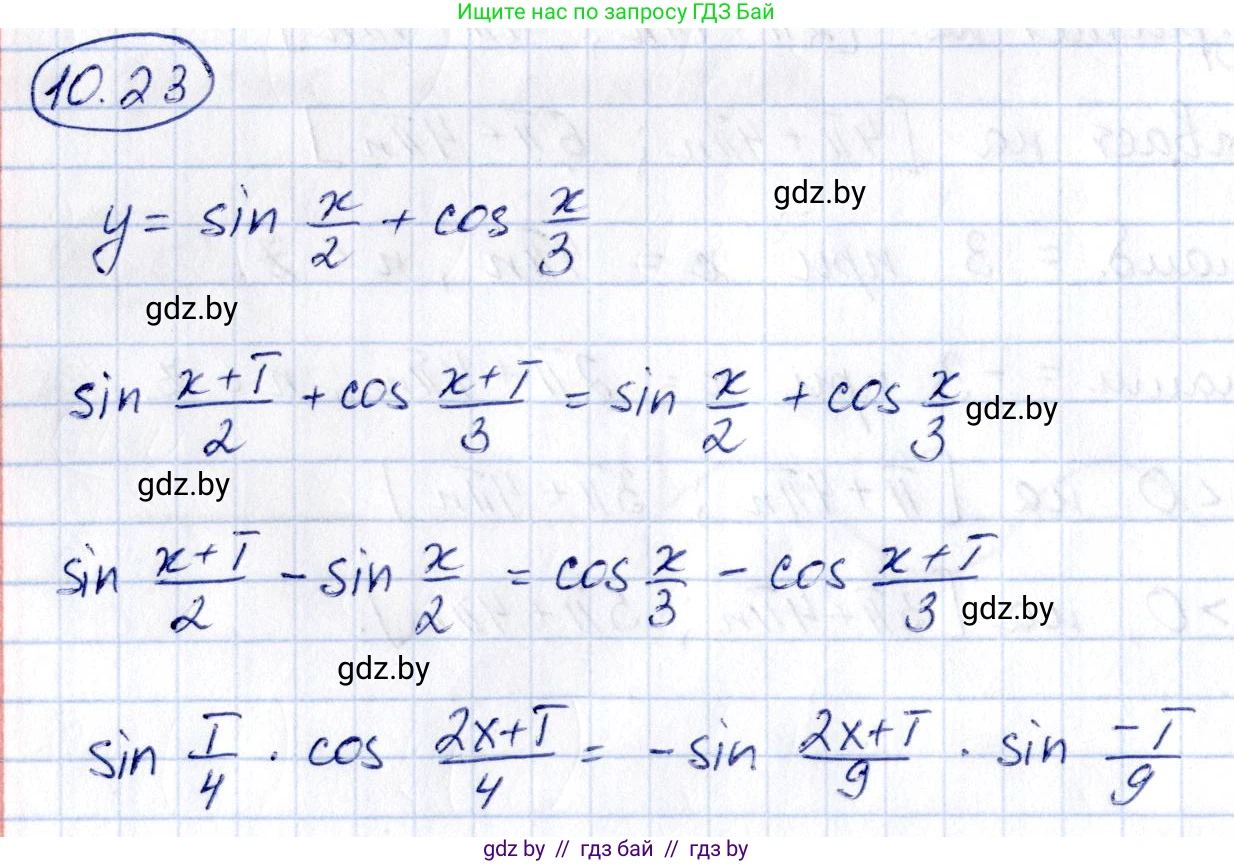 Ищите нас по запросу ГДЗ Бай
10.23
y = sin x/2 + cos x/3
gdz.by
gdz.by
sin (x+T)/2 + cos (x+T)/3 = sin x/2 + cos x/3
gdz.by
gdz.by
sin (x+T)/2 - sin x/2 = cos x/3 - cos (x+T)/3
gdz.by
gdz.by
sin T/4 · cos (2x+T)/4 = - sin (2x+T)/9 · sin (-T)/9
gdz.by // гдз бай // gdz by